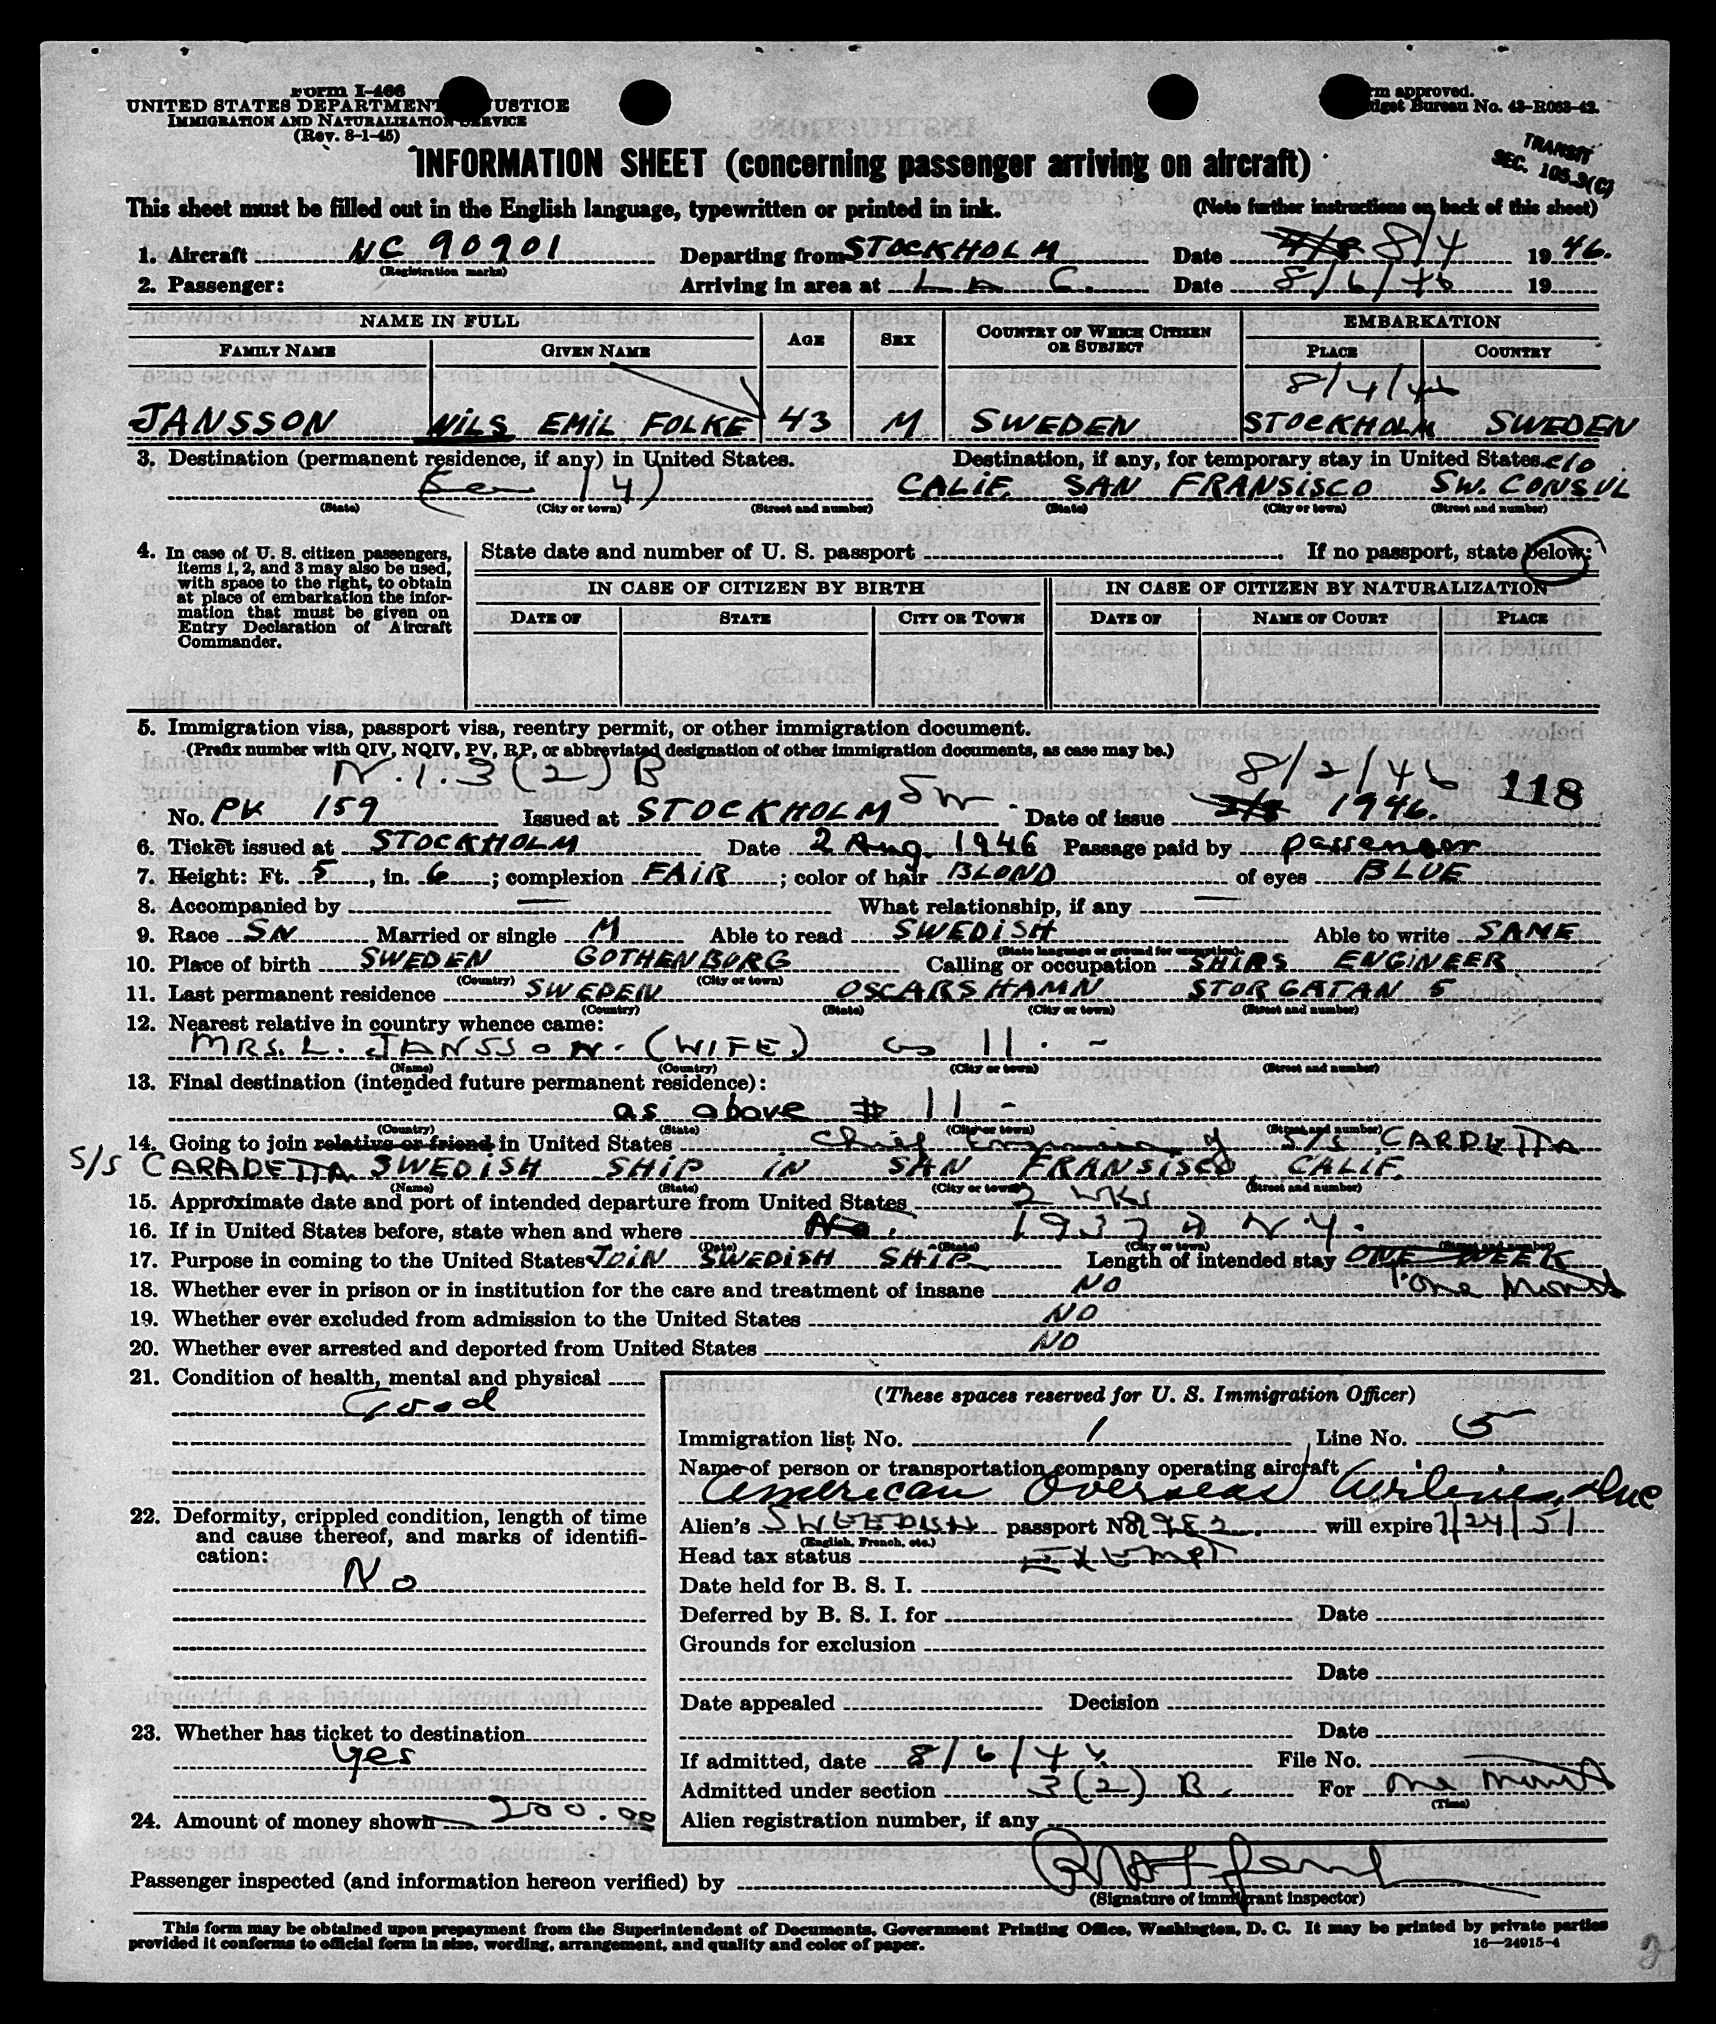 Form I-466
UNITED STATES DEPARTMENT JUSTICE
IMMIGRATION AND NATURALIZATION SERVICE
(Rev. 8-1-45)
Form approved.
Budget Bureau No. 43-R063-42.
TRANSIT
SEC. 105.3(C)
INFORMATION SHEET (concerning passenger arriving on aircraft)
This sheet must be filled out in the English language, typewritten or printed in ink. (Note further instructions on back of this sheet)
1. Aircraft NC 90901 Departing from STOCKHOLM Date 8/4 1946.
(Registration marks)
2. Passenger: Arriving in area at Date 8/6/46 19
NAME IN FULL AGE SEX COUNTRY OF WHICH CITIZEN OR SUBJECT EMBARKATION
FAMILY NAME GIVEN NAME PLACE COUNTRY
8/4/46
JANSSON NILS EMIL FOLKE 43 M SWEDEN STOCKHOLM SWEDEN
3. Destination (permanent residence, if any) in United States. Destination, if any, for temporary stay in United States. c/o
CALIF. SAN FRANSISCO SW. CONSUL
(State) (City or town) (Street and number) (State) (City or town) (Street and number)
4. In case of U. S. citizen passengers, items 1, 2, and 3 may also be used, with space to the right, to obtain at place of embarkation the information that must be given on Entry Declaration of Aircraft Commander.
State date and number of U. S. passport . If no passport, state below:
IN CASE OF CITIZEN BY BIRTH IN CASE OF CITIZEN BY NATURALIZATION
DATE OF STATE CITY OR TOWN DATE OF NAME OF COURT PLACE
5. Immigration visa, passport visa, reentry permit, or other immigration document.
(Prefix number with QIV, NQIV, PV, RP, or abbreviated designation of other immigration documents, as case may be.)
N.I. 3(2)B SW 8/2/46 118
No. PV 159 Issued at STOCKHOLM Date of issue 1946.
6. Ticket issued at STOCKHOLM Date 2 Aug. 1946 Passage paid by passenger
7. Height: Ft. 5, in. 6; complexion FAIR; color of hair BLOND of eyes BLUE
8. Accompanied by — What relationship, if any —
9. Race SN Married or single M Able to read SWEDISH Able to write SAME
(State language or ground for exemption)
10. Place of birth SWEDEN GOTHENBORG Calling or occupation SHIPS ENGINEER
(Country) (City or town)
11. Last permanent residence SWEDEN OSCARSHAMN STORGATAN 5
(Country) (State) (City or town) (Street and number)
12. Nearest relative in country whence came:
MRS. L. JANSSON. (WIFE) 11. -
(Name) (Country) (City or town) (Street and number)
13. Final destination (intended future permanent residence):
as above # 11 -
(Country) (State) (City or town) (Street and number)
14. Going to join relative or friend in United States Chief Engineer of S/S CARDETTA
S/S CARADETTA SWEDISH SHIP IN SAN FRANSISCO CALIF.
(Name) (State) (City or town) (Street and number)
15. Approximate date and port of intended departure from United States 2 WKS
16. If in United States before, state when and where No. 1937 N.Y.
(Date) (State) (City or town) (Street and number)
17. Purpose in coming to the United States JOIN SWEDISH SHIP Length of intended stay ONE WEEK
One Month
18. Whether ever in prison or in institution for the care and treatment of insane NO
19. Whether ever excluded from admission to the United States NO
20. Whether ever arrested and deported from United States NO
21. Condition of health, mental and physical
Good
22. Deformity, crippled condition, length of time and cause thereof, and marks of identification:
No
23. Whether has ticket to destination
yes
24. Amount of money shown 200.00
(These spaces reserved for U. S. Immigration Officer)
Immigration list No. 1 Line No. 5
Name of person or transportation company operating aircraft
American Overseas Airlines, Inc
Alien's SWEEDISH passport No. will expire 7/24/51
(English, French, etc.)
Head tax status Exempt
Date held for B. S. I.
Deferred by B. S. I. for Date
Grounds for exclusion
Date
Date appealed Decision
Date
If admitted, date 8/6/46 File No.
Admitted under section 3(2) B. For One Month
(Time)
Alien registration number, if any
Passenger inspected (and information hereon verified) by
(Signature of immigrant inspector)
This form may be obtained upon prepayment from the Superintendent of Documents, Government Printing Office, Washington, D. C. It may be printed by private parties
provided it conforms to official form in size, wording, arrangement, and quality and color of paper. 16—24915-4